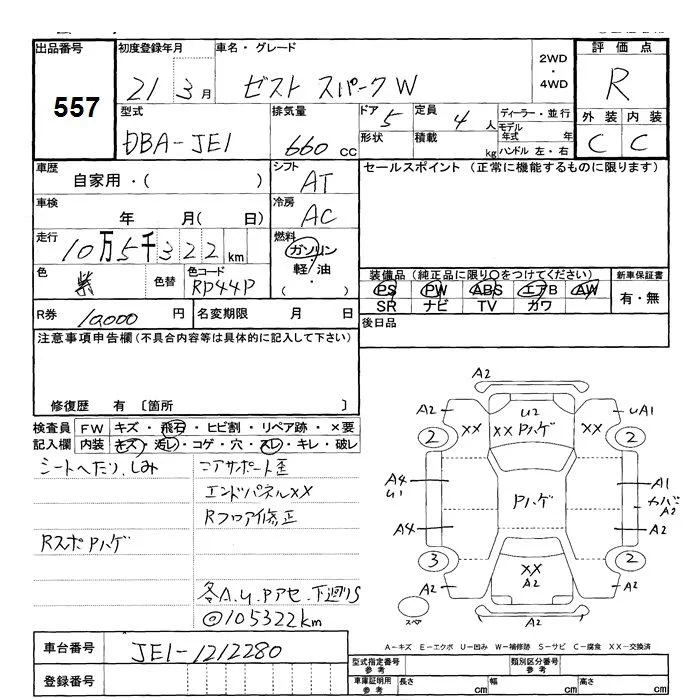 出品番号 初度登録年月 車名・グレード 評価点
557 21 3月 ゼスト スパークW 2WD・4WD R
型式 排気量 ドア 5 定員 4人 ディーラー・並行 外装 内装
DBA-JE1 660cc 形状 積載 kg モデル年式 年 ハンドル 左・右 C C
車歴 シフト セールスポイント (正常に機能するものに限ります)
自家用・( ) AT
車検 冷房
年 月( 日) AC
走行 燃料
10万5千322km ガソリン・軽・油・( )
色 色替 色コード 装備品 (純正品に限り○をつけてください) 新車保証書
紫 RP44P PS PW ABS エアB AW 有・無
SR ナビ TV カワ
R券 10,000円 名変期限 月 日 後日品
注意事項申告欄 (不具合内容等は具体的に記入して下さい)
修復歴 有 〔箇所 〕
検査員 FW キズ・飛石・ヒビ割・リペア跡・×要
記入欄 内装 キズ・汚レ・コゲ・穴・スレ・キレ・破レ
シートへたり、しみ コアサポート歪
エンドパネルXX
Rフロア修正
Rスポ Pハゲ
各A.U.Pアセ.下廻りS
@105322km
A2
A2 U2 UA1
XX XX Pハゲ XX
2 2
A4 U1 Pハゲ A1
カバー A2
A4 A2
3 2
XX
A2 A2 A2
スペア A2
A-キズ E-エクボ U-凹み W-補修跡 S-サビ C-腐食 XX-交換済
車台番号 JE1-1212280
登録番号
型式指定番号 参考 類別区分番号 参考
車庫証明用 参考 長さ cm 幅 cm 高さ cm